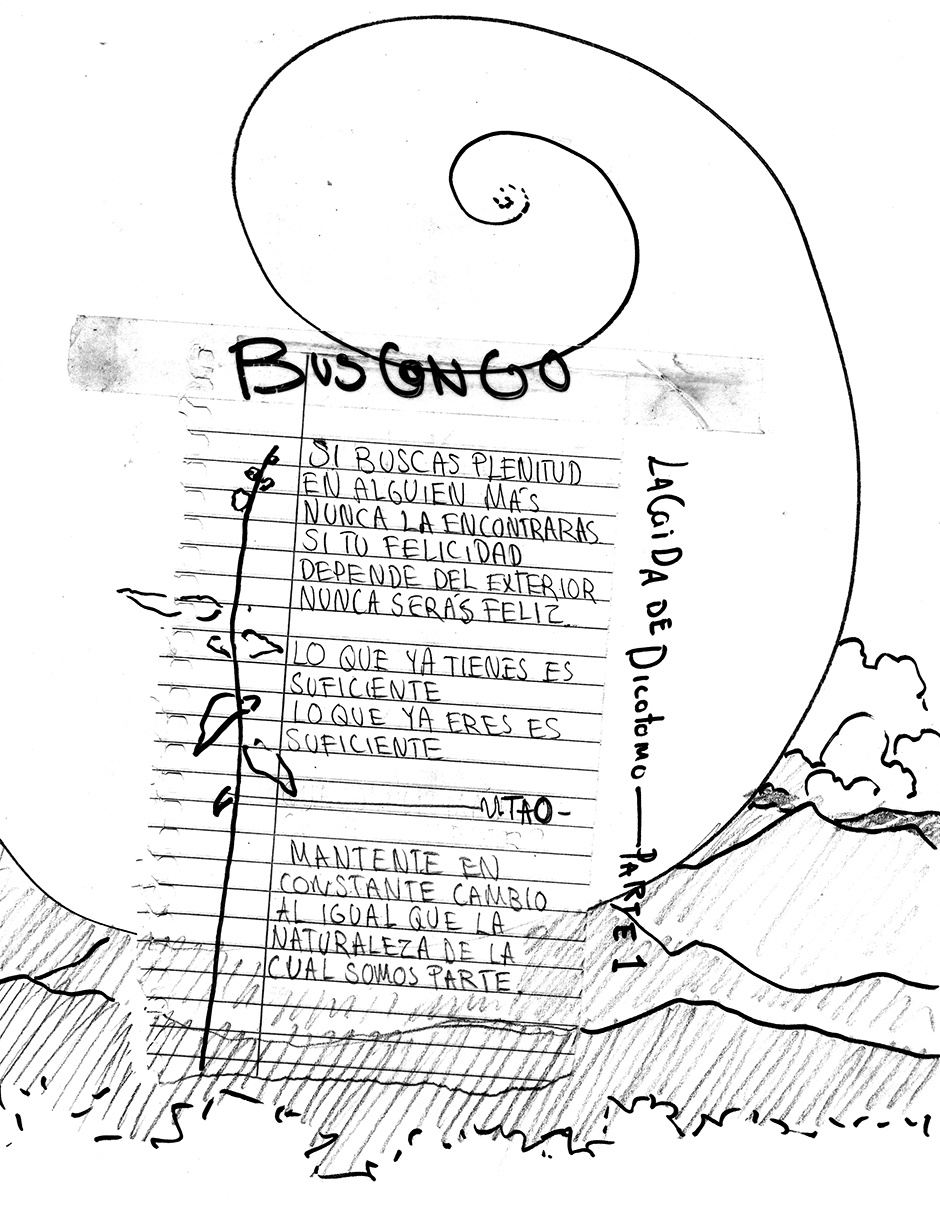 BUSCANDO
SI BUSCAS PLENITUD
EN ALGUIEN MÁS
NUNCA LA ENCONTRARAS
SI TU FELICIDAD
DEPENDE DEL EXTERIOR
NUNCA SERÁS FELIZ.
LO QUE YA TIENES ES
SUFICIENTE
LO QUE YA ERES ES
SUFICIENTE
UTAO-
MANTENTE EN
CONSTANTE CAMBIO
AL IGUAL QUE LA
NATURALEZA DE LA
CUAL SOMOS PARTE.
LA CAIDA DE DICOTOMO — PARTE 1